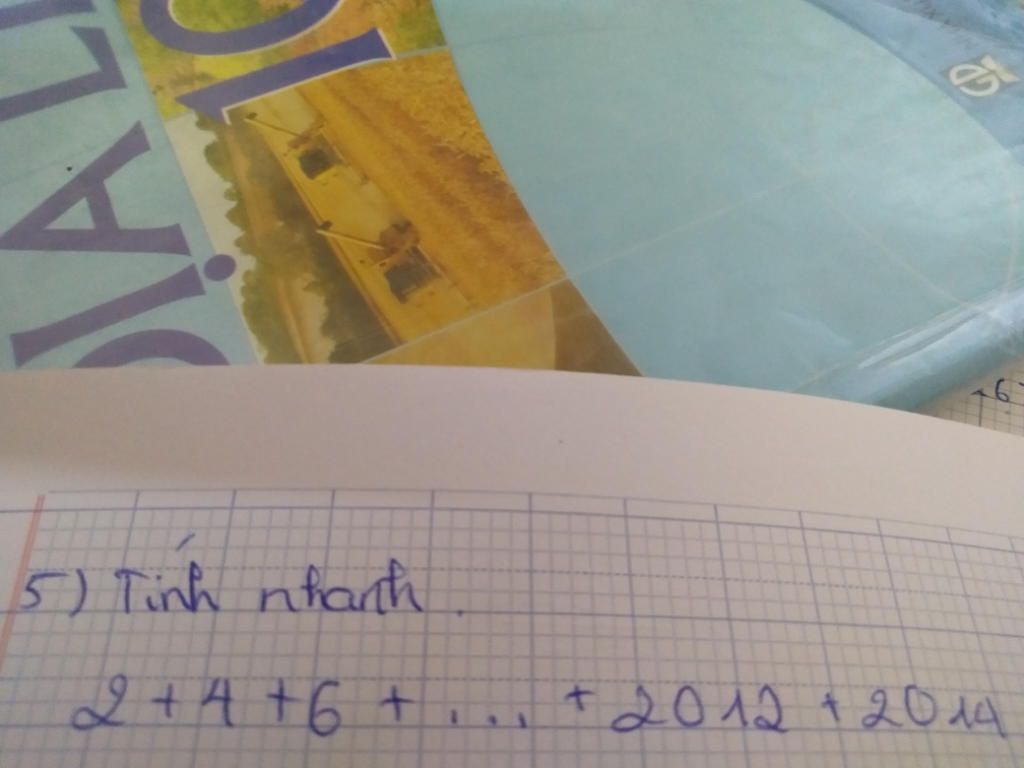 ĐỊA LÍ 10
5) Tính nhanh.
2 + 4 + 6 + .... + 2012 + 2014